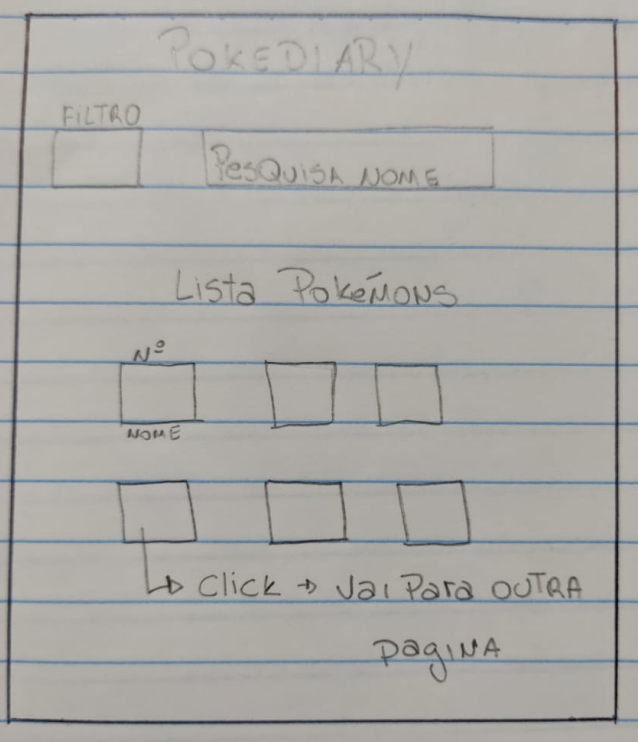 POKEDIARY
FILTRO
PesQuisa NOME
Lista PokéMONS
Nº
NOME
Click → Vai Para OUTRA
pagina